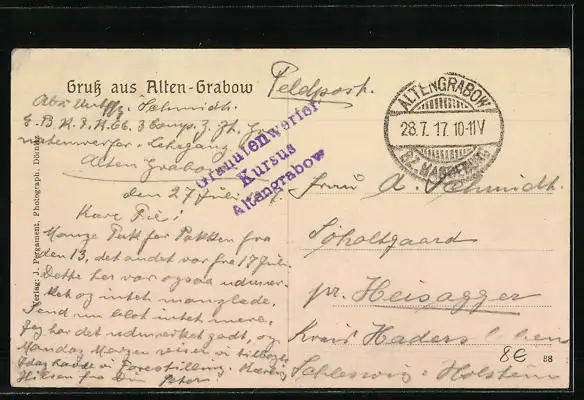 Gruß aus Alten-Grabow
Feldpost.
Abs. Schmidt.
3. Comp.
Alten Grabow
den 27 Juli
Kære Pie!
Mange Tak for Pakken fra
den 13, det andet var fra 17 Juli.
Dette her var ogsaa udmær-
ket og intet manglede.
Send nu blot intet mere.
Jeg har det udmærket godt, og
Mandag Morgen rejser vi tilbage.
Idag havde vi Forestilling. Kærlig
Hilsen fra Din Peter
Granatenwerfer
Kursus
Altengrabow
ALTENGRABOW
28.7.17.10-11V
BZ. MAGDEBURG
Frau A. Schmidt.
Sjholtgaard
pr. Heisagger
Kreis Haders
Schleswig-Holstein
8€
88
Verlag: J. Pergament, Photograph, Dörnitz